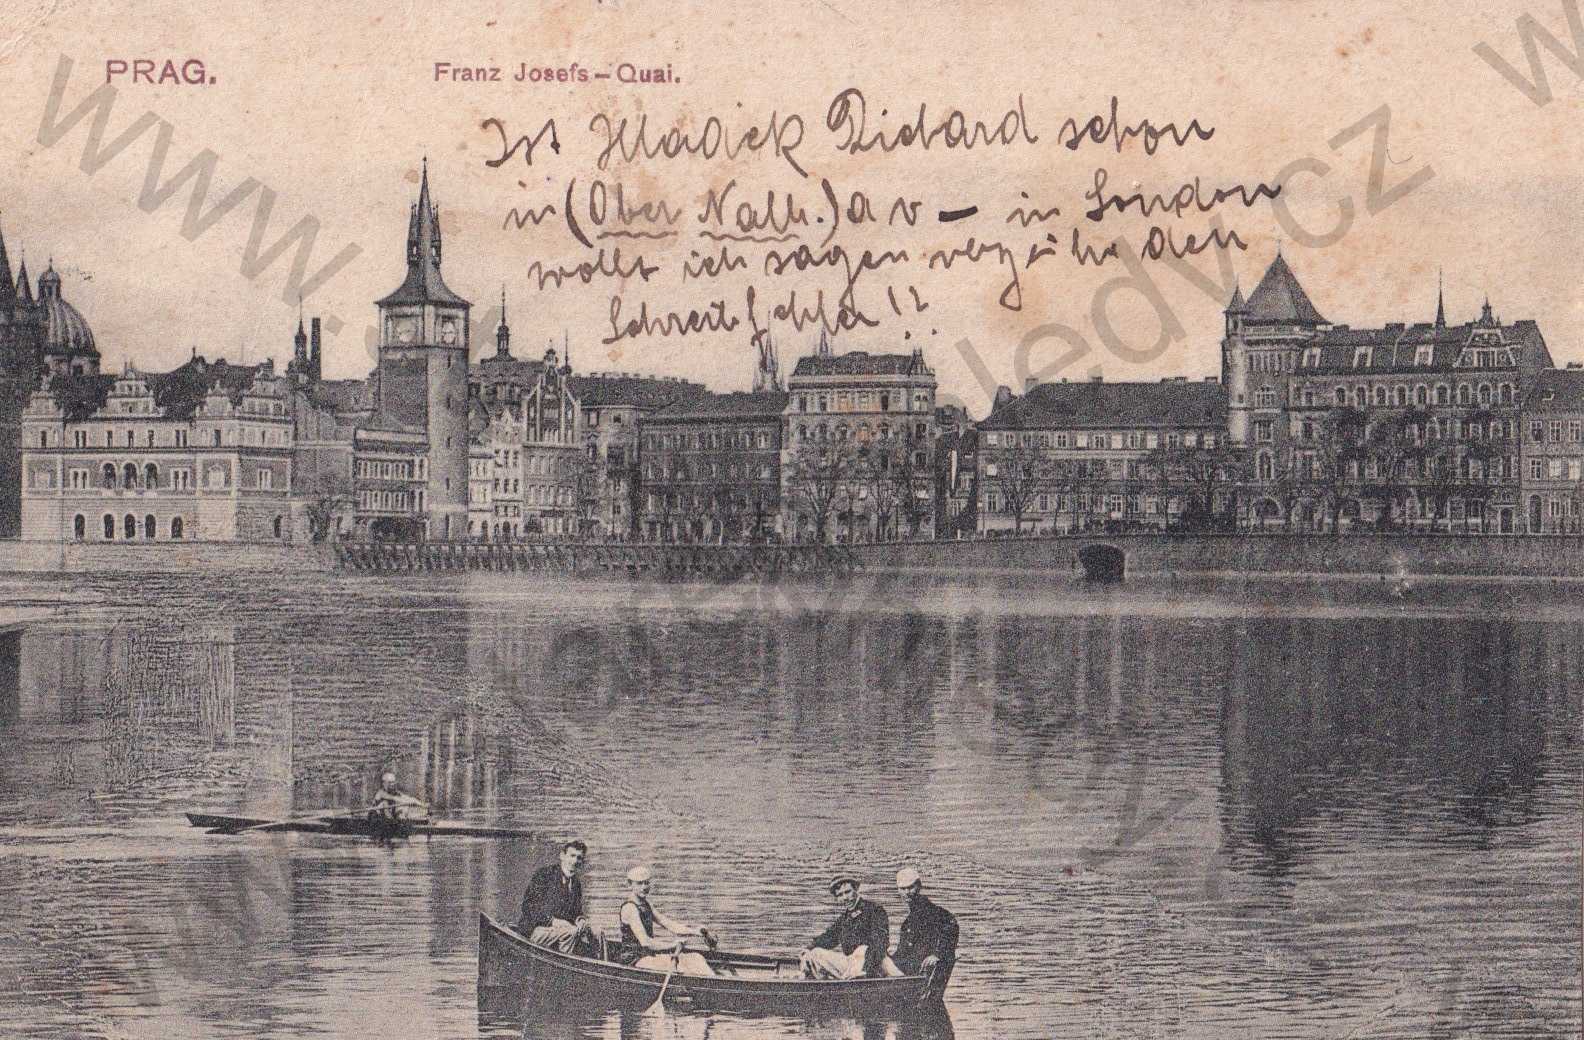 PRAG.
Franz Josefs-Quai.
Ist Hladek Richard schon
in (Ober Nalb.) a v - in London
wollt ich sagen verzeihe den
Schreibfehler!?